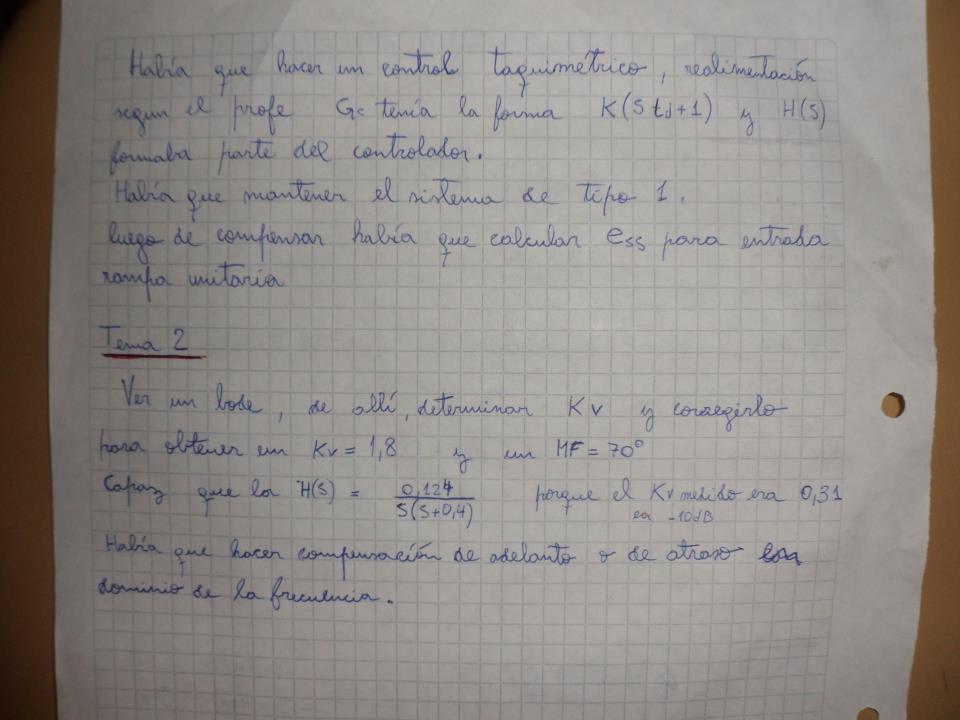 Había que hacer un control taquimétrico, realimentación
segun el profe Gc tenía la forma K(S td+1) y H(S)
formaba parte del controlador.
Había que mantener el sistema de tipo 1.
luego de compensar había que calcular ess para entrada
rampa unitaria
Tema 2
Ver un bode, de allí, determinar Kv y corregirlo
para obtener un Kv = 1,8 y un MF = 70°
Capaz que la H(S) = 0,124 / S(S+0,4) porque el Kv medido era 0,31
en -10dB
Había que hacer compensación de adelanto o de atraso en
dominio de la frecuencia.